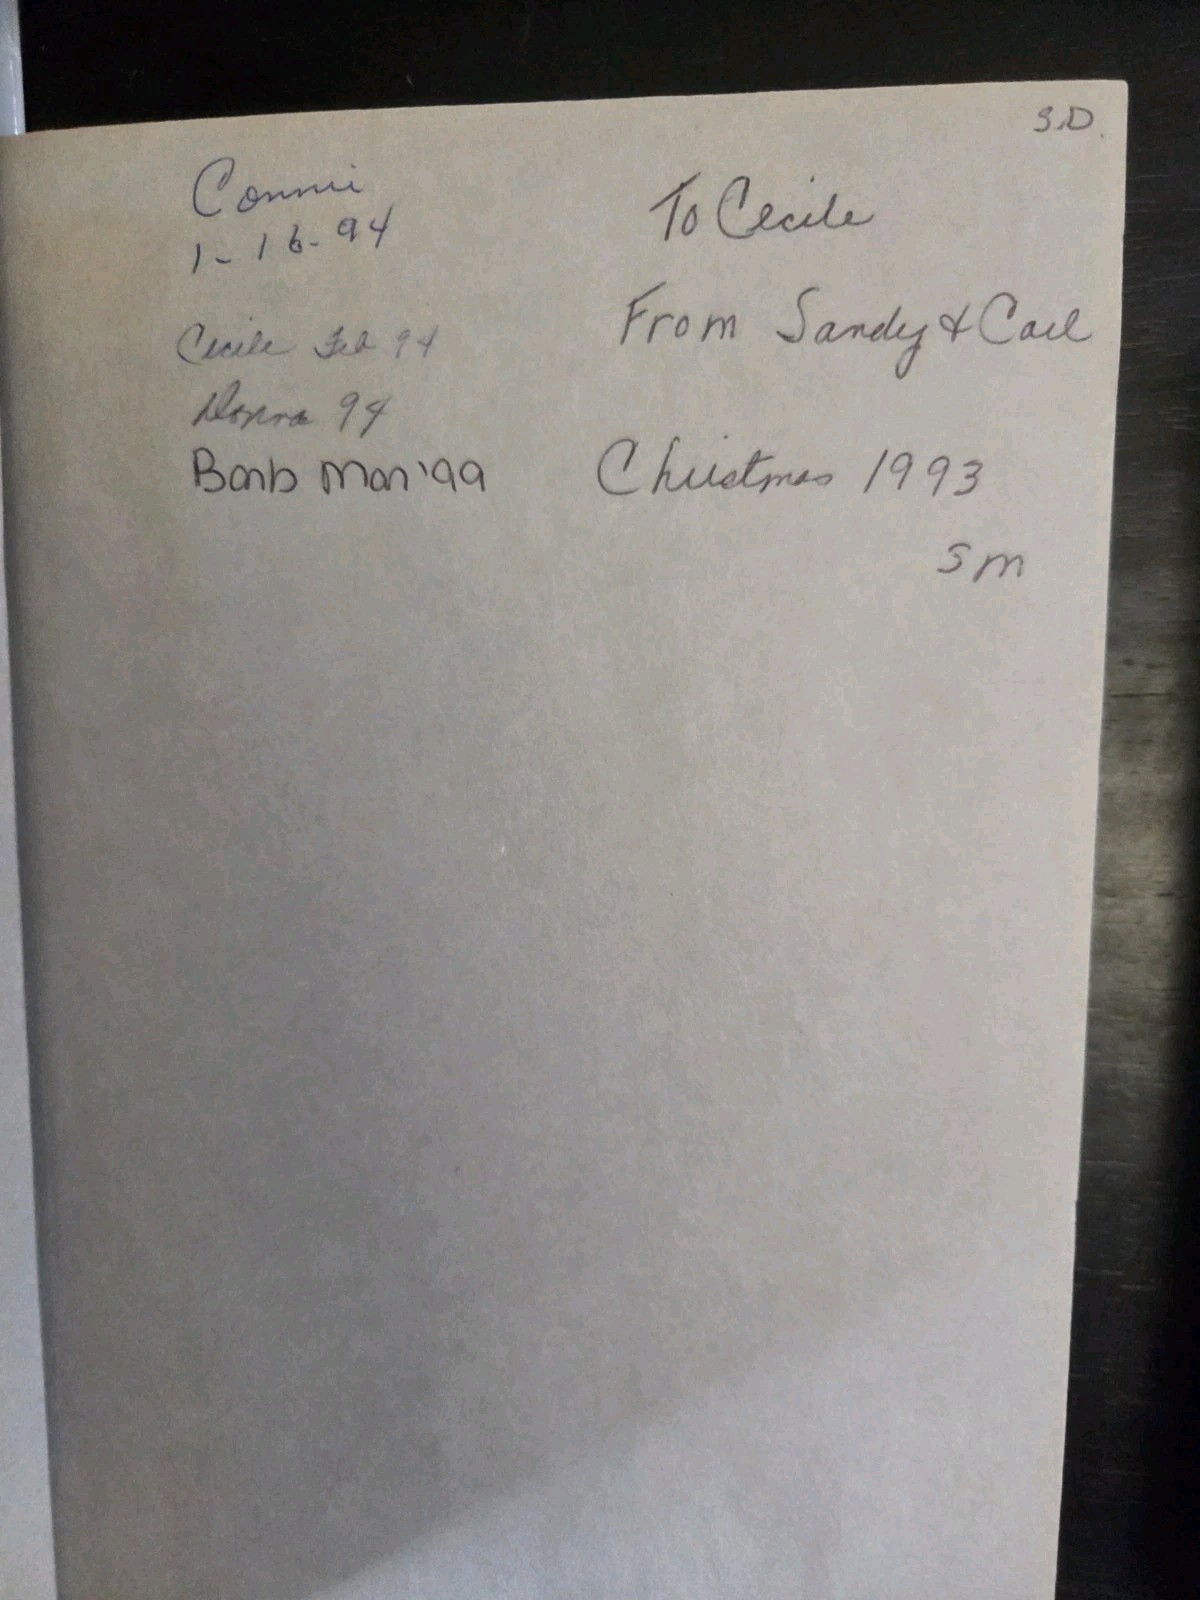 S.D.
Connie
1-16-94
Cecile Feb 94
Donna 94
Barb Mar '99
To Cecile
From Sandy & Carl
Christmas 1993
SM